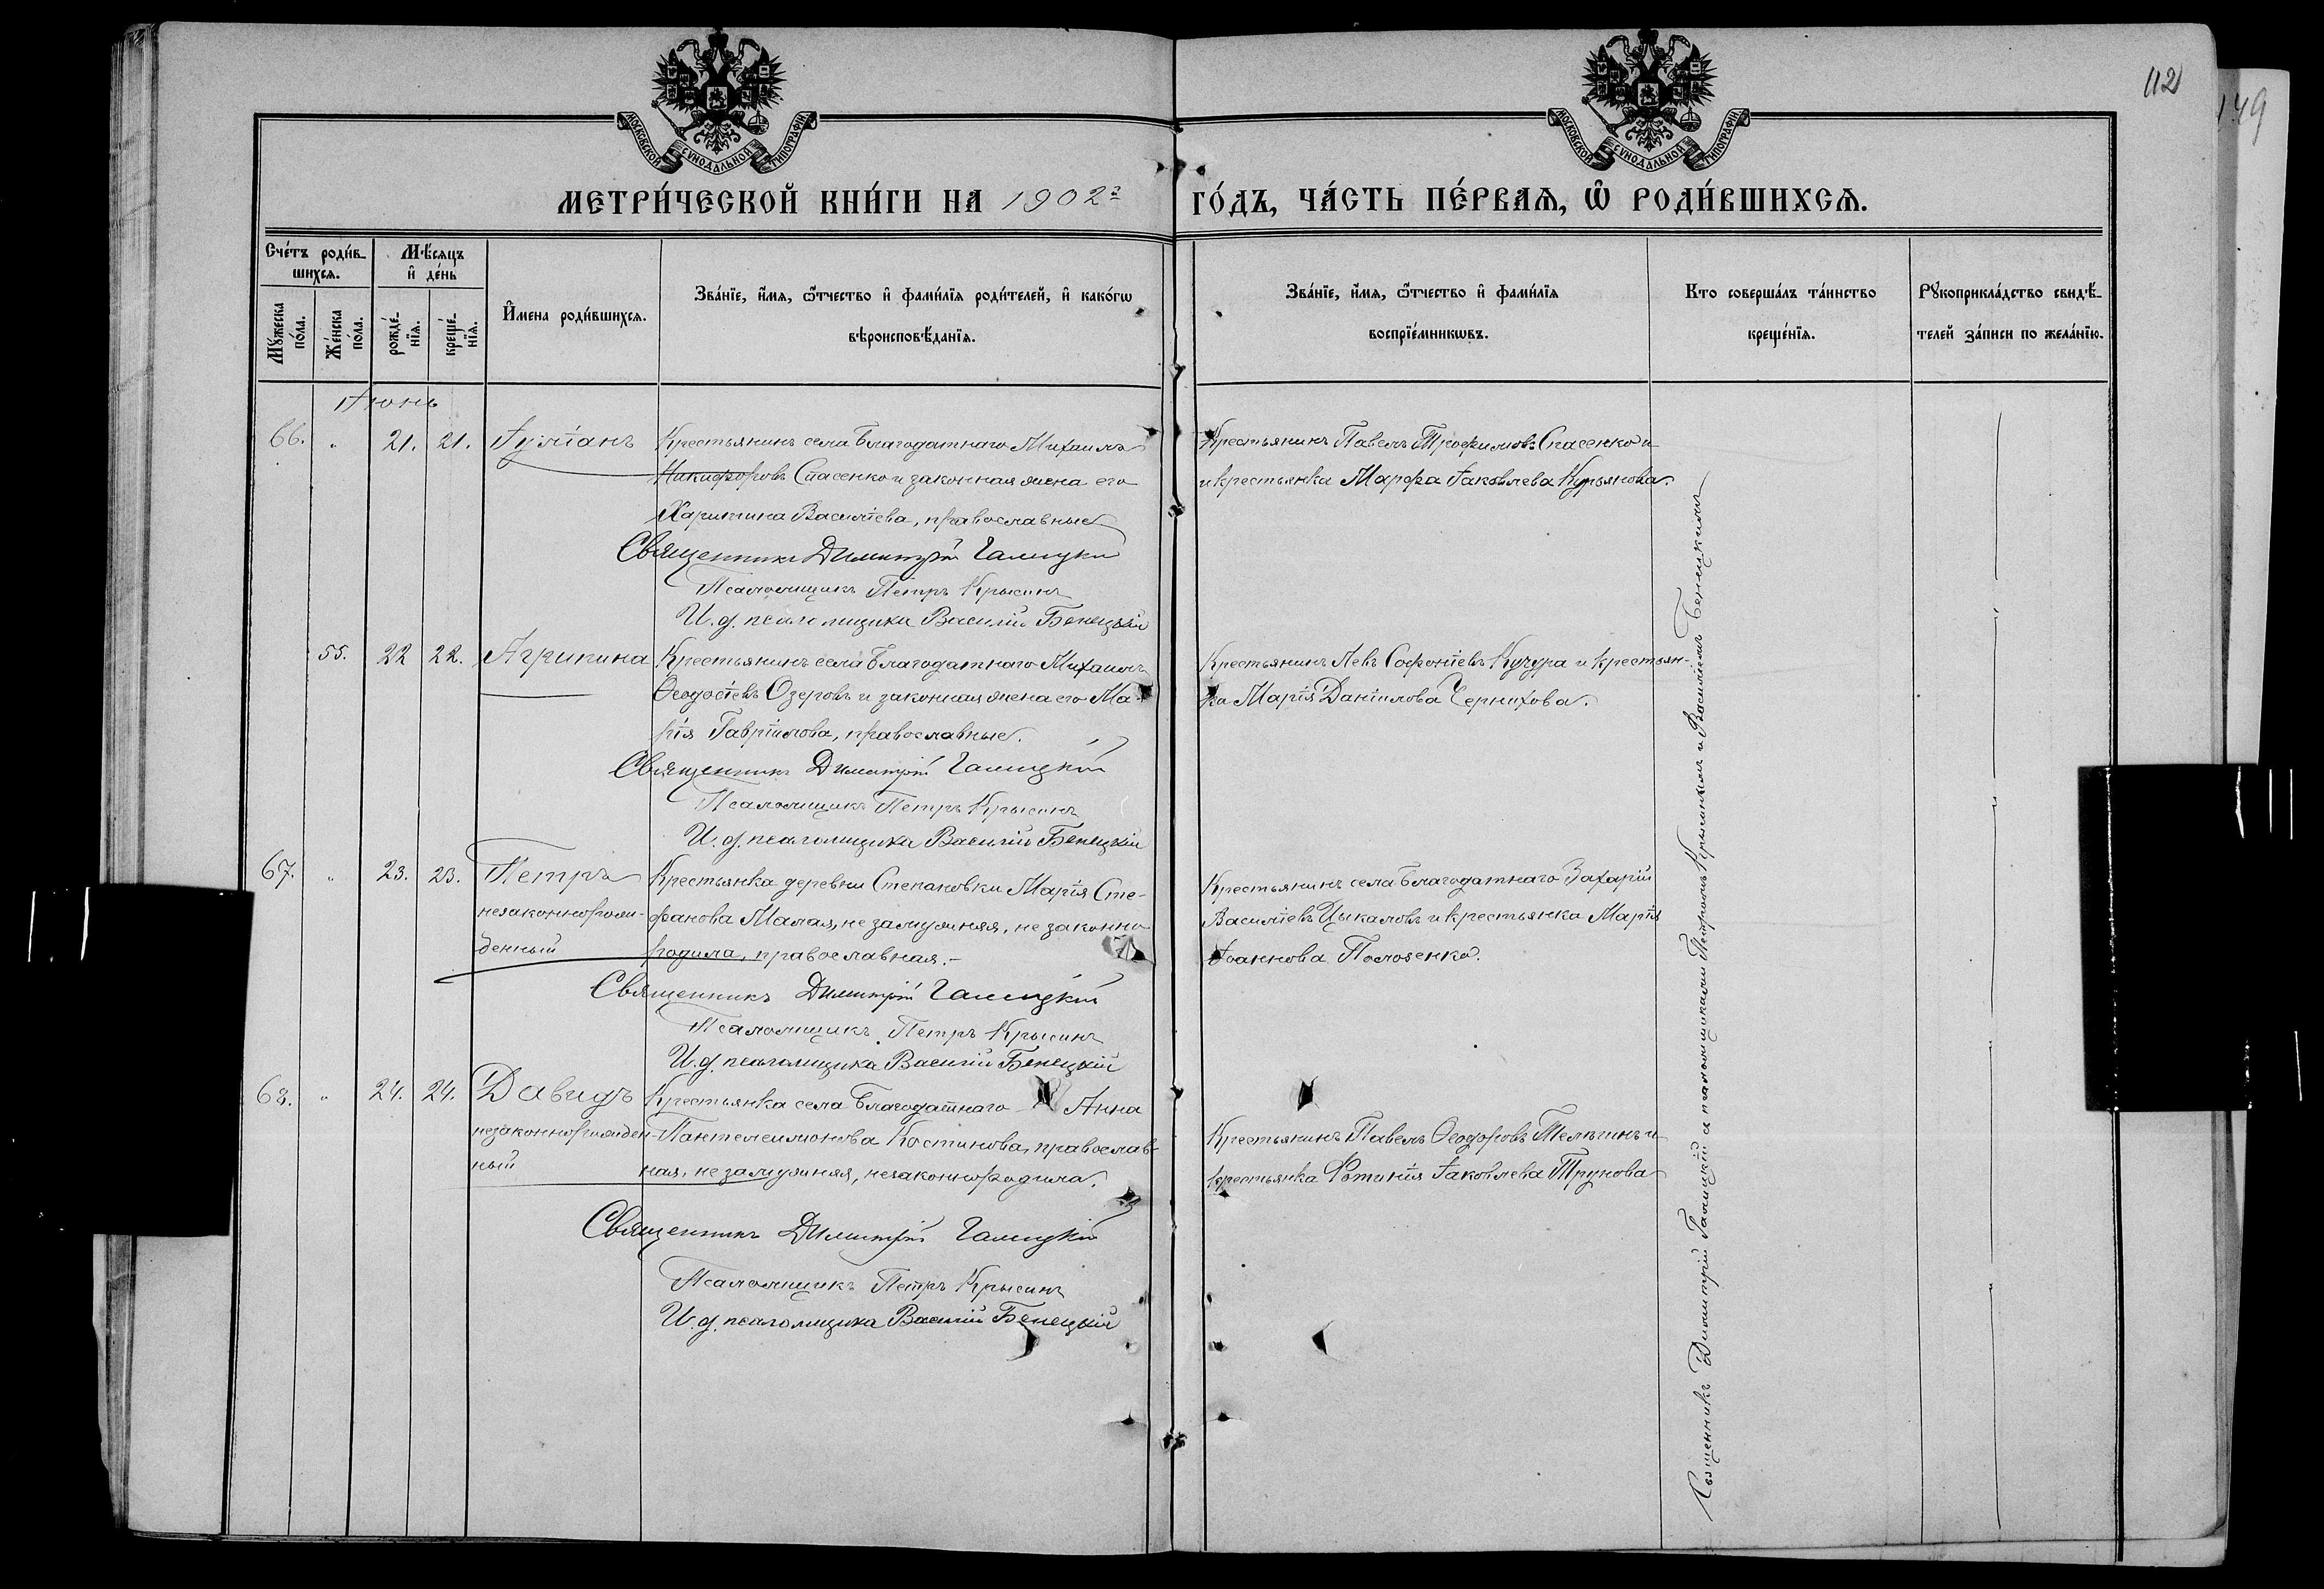 112
149
МОСКОВСКОЙ СѴНОДАЛЬНОЙ ТИПОГРАФІИ
МОСКОВСКОЙ СѴНОДАЛЬНОЙ ТИПОГРАФІИ
МЕТРИ́ЧЕСКОЙ КНИ́ГИ НА 1902й ГО́ДЪ, ЧА́СТЬ ПЕ́РВАѦ, Ѽ РОДИ́ВШИХСѦ.
Сче́тъ роди́в-
шихсѧ.
Мꙋ́жеска по́ла.
Же́нска по́ла.
Мѣ́сяцъ
и҆ де́нь
рожде́-
нїѧ.
креще́-
нїѧ.
И҆́мена роди́вшихсѧ.
Зва́нїе, и҆́мѧ, ѻ҆́тчество и҆ фами́лїѧ роди́телей, и҆ како́гѡ
вѣроисповѣ́данїѧ.
Зва́нїе, и҆́мѧ, ѻ҆́тчество и҆ фами́лїѧ
воспрїе́мникѡвъ.
Кто соверша́лъ та́инство
креще́нїѧ.
Рꙋкоприкла́дство свидѣ́-
телей за́писи по жела́нїю.
Іюнь
66. " 21. 21. Іуліанъ
Крестьянинъ села Благодатнаго Михаилъ
Никифоровъ Спасенко и законная жена его
Харитина Василіева, православные
Священникъ Димитрій Галицкій
Псаломщикъ Петръ Крысинъ
И. д. псаломщика Василій Бенецкій
Крестьянинъ Павелъ Трофимовъ Спасенко и
и крестьянка Марфа Іаковлева Курьянова.
55. 22 22. Агрипина
Крестьянинъ села Благодатнаго Михаилъ
Ѳеодосіевъ Озеровъ и законная жена его Ма-
рія Гавріилова, православные.
Священникъ Димитрій Галицкій
Псаломщикъ Петръ Крысинъ
И. д. псаломщика Василій Бенецкій
Крестьянинъ Левъ Софоніевъ Кучура и крестьян-
ка Марія Даніилова Чернихова.
67. " 23. 23. Петръ
незаконнорож-
денный
Крестьянка деревни Степановки Марія Сте-
фанова Малая, не замужняя, не законно
родила, православная.-
Священникъ Димитрій Галицкій
Псаломщикъ Петръ Крысинъ
И. д. псаломщика Василій Бенецкій
Крестьянинъ села Благодатнаго Захарій
Василіевъ Цыкаловъ и крестьянка Марія
Іоаннова Положенко.
68. " 24. 24. Давидъ
незаконнорожден-
ный
Крестьянка села Благодатнаго Анна
Пантелеимонова Костинова, православ-
ная, не замужняя, незаконно родила.
Священникъ Димитрій Галицкій
Псаломщикъ Петръ Крысинъ
И. д. псаломщика Василій Бенецкій
Крестьянинъ Павелъ Ѳеодоровъ Телегинъ и
крестьянка Фотинія Іаковлева Трунова
Священникъ Димитрій Галицкій съ псаломщиками Петромъ Крысинымъ и Василіемъ Бенецкимъ